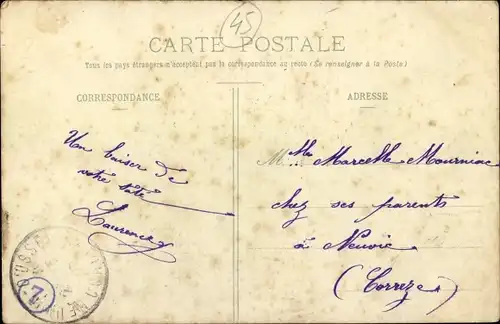 45
CARTE POSTALE
Tous les pays étrangers n'acceptent pas la correspondance au recto (Se renseigner à la Poste)
CORRESPONDANCE
ADRESSE
Un baiser de
votre
Laurence
Mlle Marcelle Mourniac
chez ses parents
à Neuvic
(Corrèze)